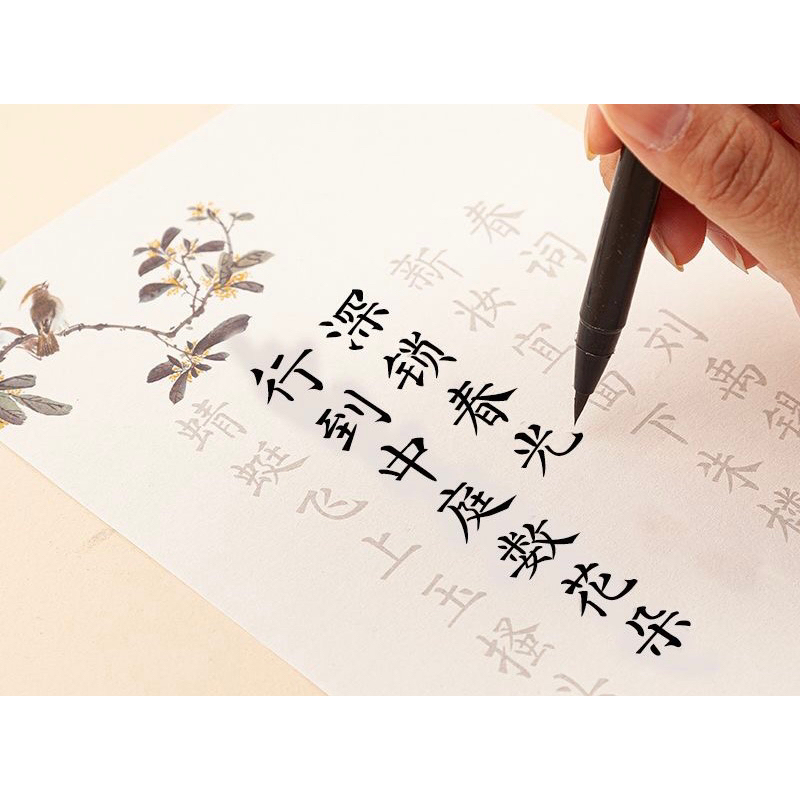 春词 刘禹锡
新妆宜面下朱楼
深锁春光
行到中庭数花朵
蜻蜓飞上玉搔